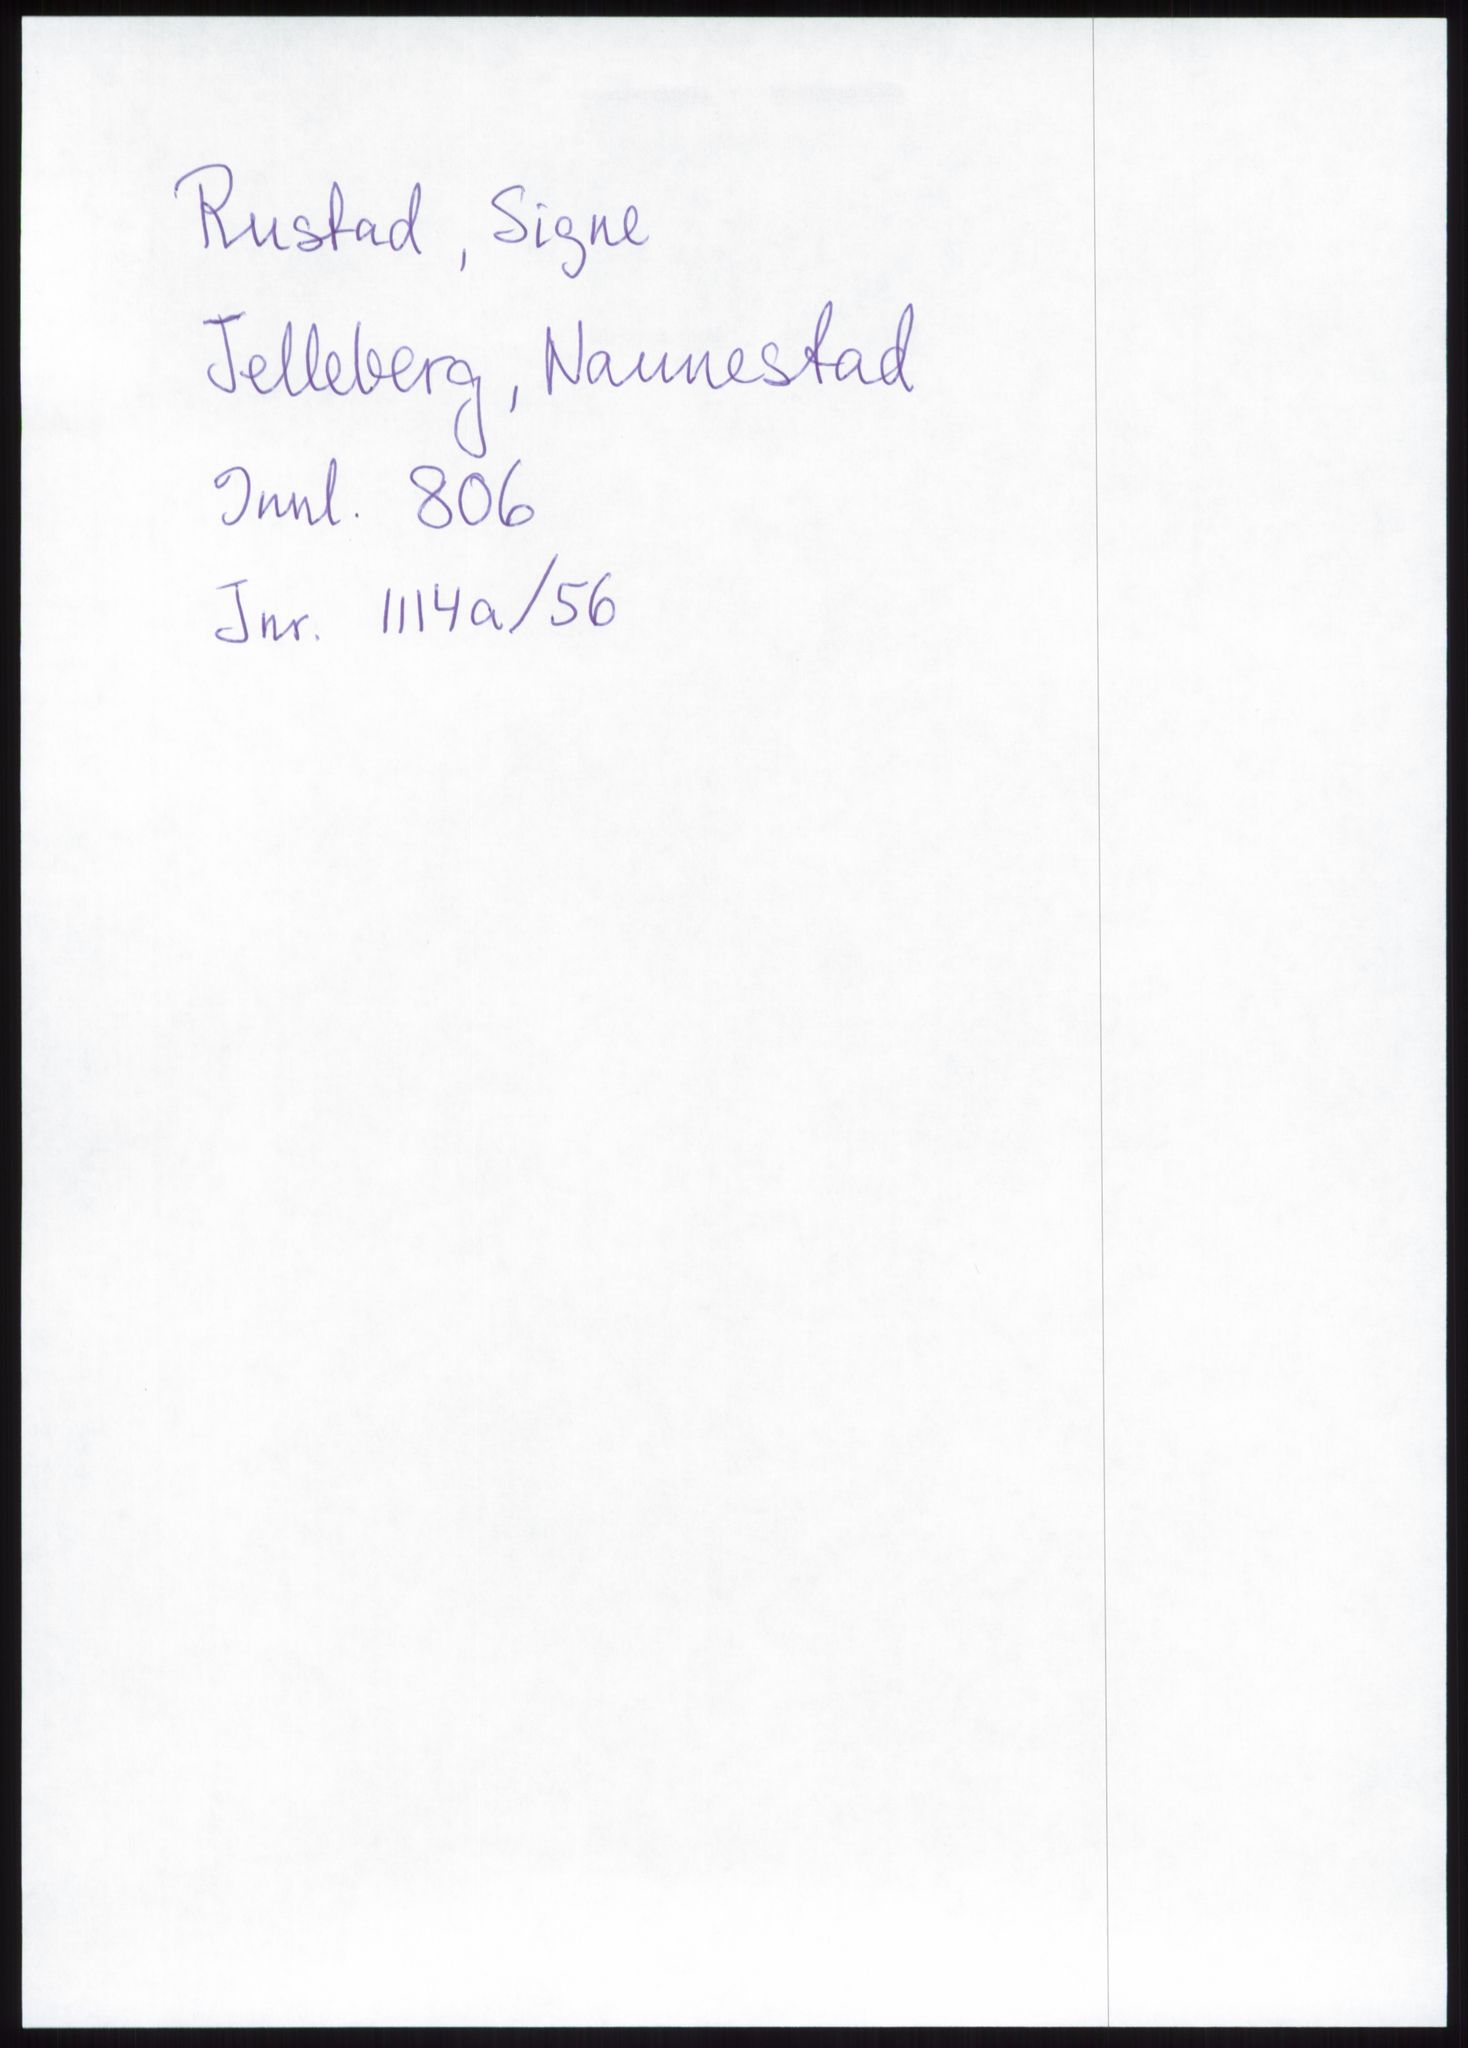 Rustad, Signe
Jelleberg, Nannestad
Innl. 806
Jnr. 1114a/56